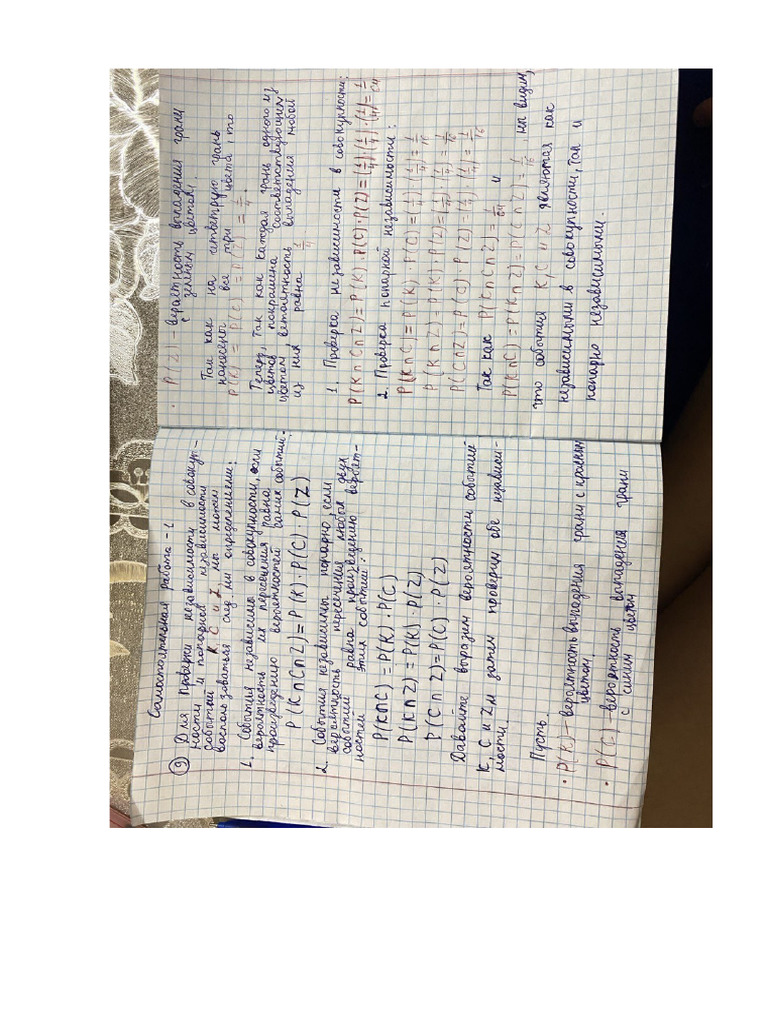 Самостоятельная работа - 1
⑨ Для проверки независимости в совокуп-
ности и попарной независимости
событий K, C и Z, мы можем
воспользоваться след-ми определениями:
1. События независимы в совокупности, если
вероятность их пересечения равна
произведению вероятностей самих событий.
P(K∩C∩Z)=P(K)·P(C)·P(Z)
2. События независимы попарно, если
вероятность пересечения любой двух
событий равна произведению вероят-
ностей этих событий:
P(K∩C)=P(K)·P(C)
P(K∩Z)=P(K)·P(Z)
P(C∩Z)=P(C)·P(Z)
Давайте выразим вероятности событий
K, C и Z и затем проверим обе независи-
мости.
Пусть:
• P(K) - вероятность выпадения грани с красным
цветом.
• P(C) - вероятность выпадения грани
с синим цветом
• P(Z) - вераетность выпадения грани
с зелёным цветом.
Так как на четвертую грань
нанесены все три цвета, то
P(K) = P(C) = P(Z) = 1/4.
Теперь, так как каждая грань одного из
цветов покрашена соответствующим
цветом ветоятность выпадения любой
из них равна 1/4
1. Проверка независимости в совокупности:
P(K∩C∩Z)=P(K)·P(C)·P(Z)=(1/4)·(1/4)·(1/4)=1/64
2. Проверка попарной независимости:
P(K∩C)=P(K)·P(C)=(1/4)·(1/4)=1/16
P(K∩Z)=P(K)·P(Z)=(1/4)·(1/4)=1/16
P(C∩Z)=P(C)·P(Z)=(1/4)·(1/4)=1/16
Так как P(K∩C∩Z)=1/64 и
P(K∩C)=P(K∩Z)=P(C∩Z)=1/16, мы видим,
что события K, C и Z являются как
независимыми в совокупности, так и
попарно независимыми.